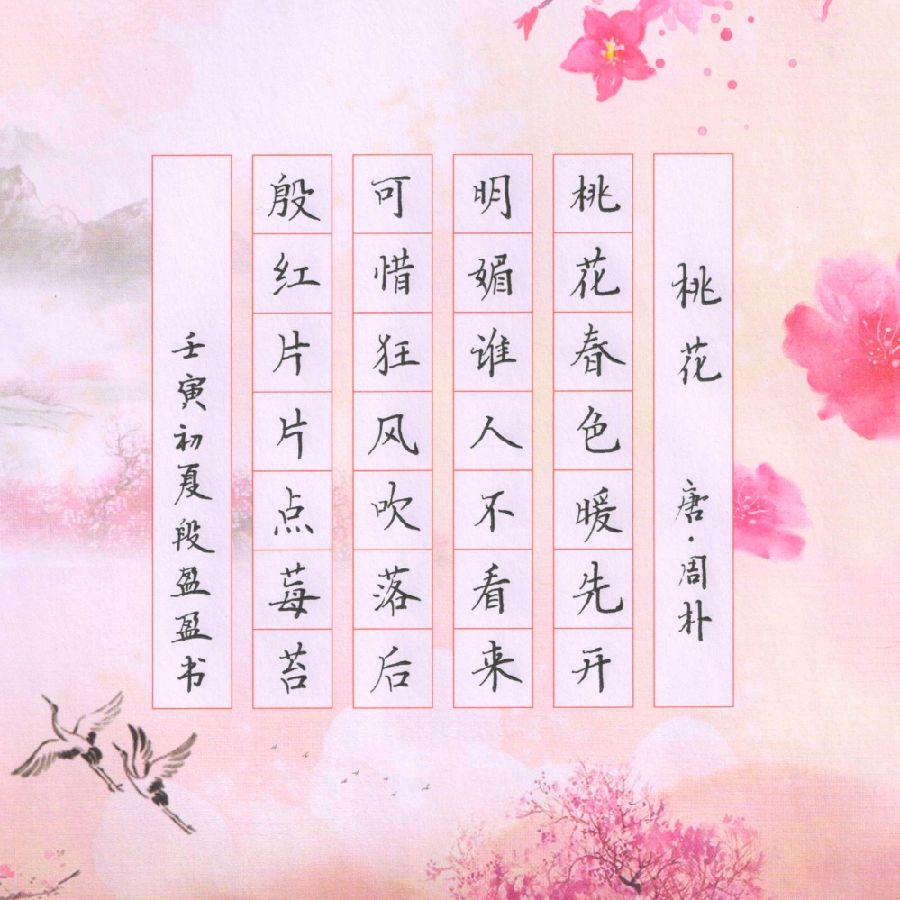 桃花 唐·周朴
桃花春色暖先开
明媚谁人不看来
可惜狂风吹落后
殷红片片点莓苔
壬寅初夏段盈盈书